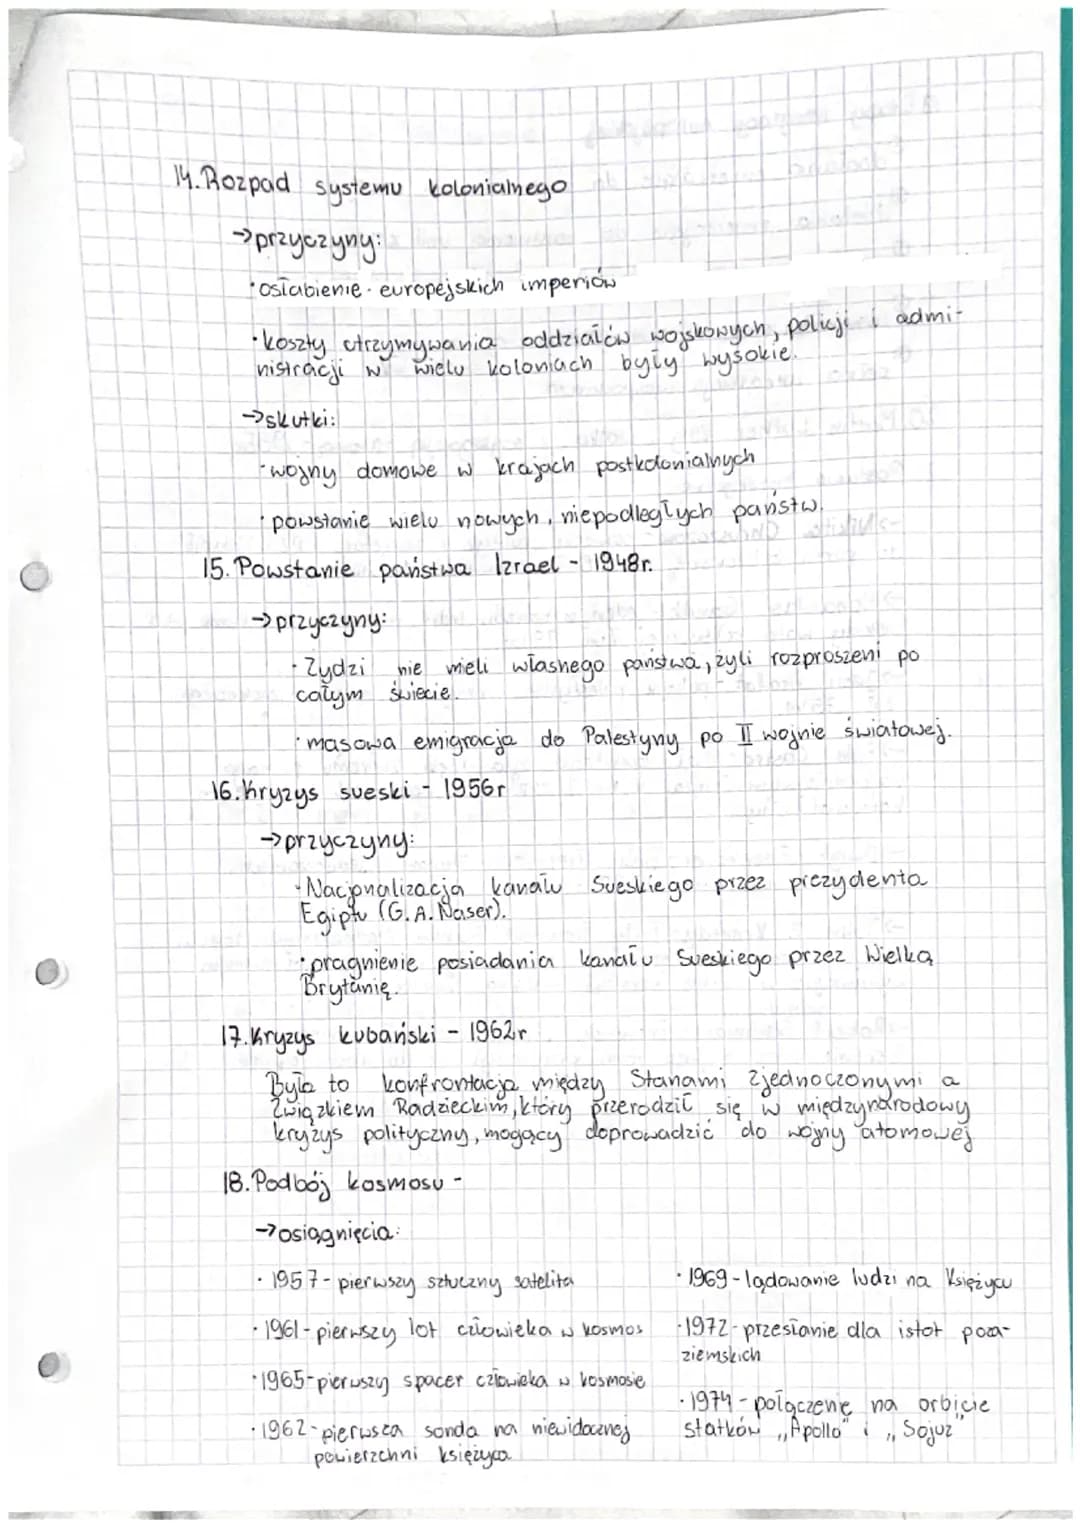 14. Rozpad systemu kolonialnego
→ przyczyny:
· osłabienie europejskich imperiów
· koszty utrzymywania oddziałów wojskowych, policji i admi-
nistracji w wielu koloniach były wysokie.
→ skutki:
· wojny domowe w krajach postkolonialnych
· powstanie wielu nowych, niepodległych państw.
15. Powstanie państwa Izrael - 1948r.
→ przyczyny:
· Żydzi nie mieli własnego państwa, żyli rozproszeni po
całym świecie.
· masowa emigracja do Palestyny po II wojnie światowej.
16. Kryzys sueski - 1956r
→ przyczyny:
· Nacjonalizacja kanału Sueskiego przez prezydenta
Egiptu (G. A. Naser).
· pragnienie posiadania kanału Sueskiego przez Wielką
Brytanię.
17. Kryzys kubański - 1962r
Była to konfrontacja między Stanami Zjednoczonymi a
Związkiem Radzieckim, który przerodził się w międzynarodowy
kryzys polityczny, mogący doprowadzić do wojny atomowej
18. Podbój kosmosu -
→ osiągnięcia:
· 1957 - pierwszy sztuczny satelita
· 1961 - pierwszy lot człowieka w kosmos
· 1965 - pierwszy spacer człowieka w kosmosie
· 1962 - pierwsza sonda na niewidocznej
powierzchni księżyca
· 1969 - lądowanie ludzi na Księżycu
· 1972 - przesłanie dla istot poza-
ziemskich
· 1974 - połączenie na orbicie
statków „Apollo" i „Sojuz"